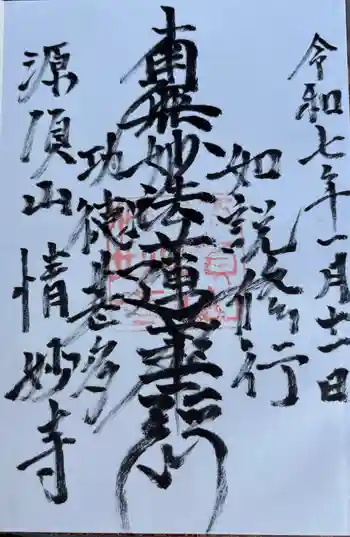 令和七年一月十一日
如説修行
南無妙法蓮華経
功徳甚多
源須山 情妙寺